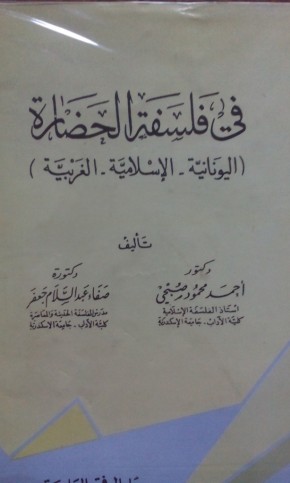 في فلسفة الحضارة
(اليونانية - الإسلامية - الغربية)
تأليف
دكتور
أحمد محمود صبحي
أستاذ الفلسفة الإسلامية
كلية الآداب - جامعة الإسكندرية
دكتورة
صفاء عبد السلام جعفر
مدرس الفلسفة الحديثة والمعاصرة
كلية الآداب - جامعة الإسكندرية